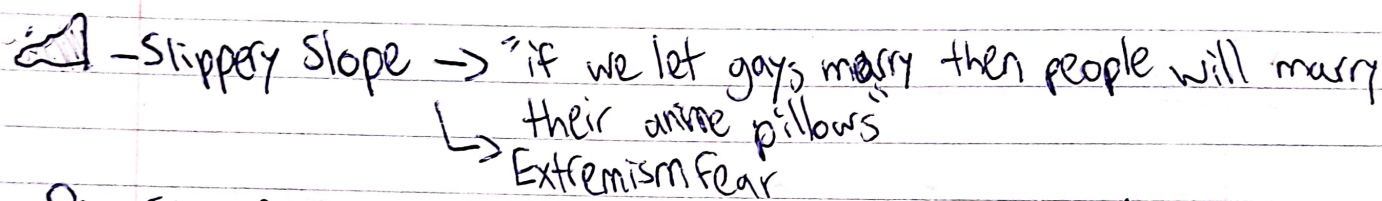 -Slippery Slope → "if we let gays marry then people will marry
their anime pillows"
↳ Extremism Fear